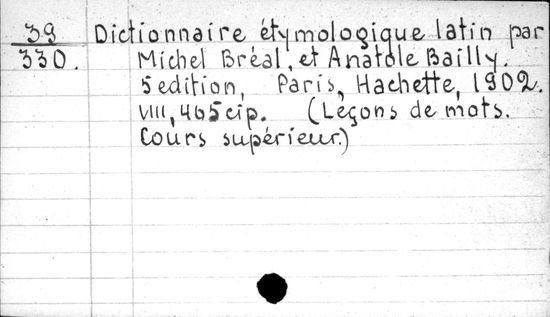 39 Dictionnaire étymologique latin par
330. Michel Bréal, et Anatole Bailly.
5 edition, Paris, Hachette, 1902.
VIII, 465 c/p. (Leçons de mots.
Cours supérieur.)